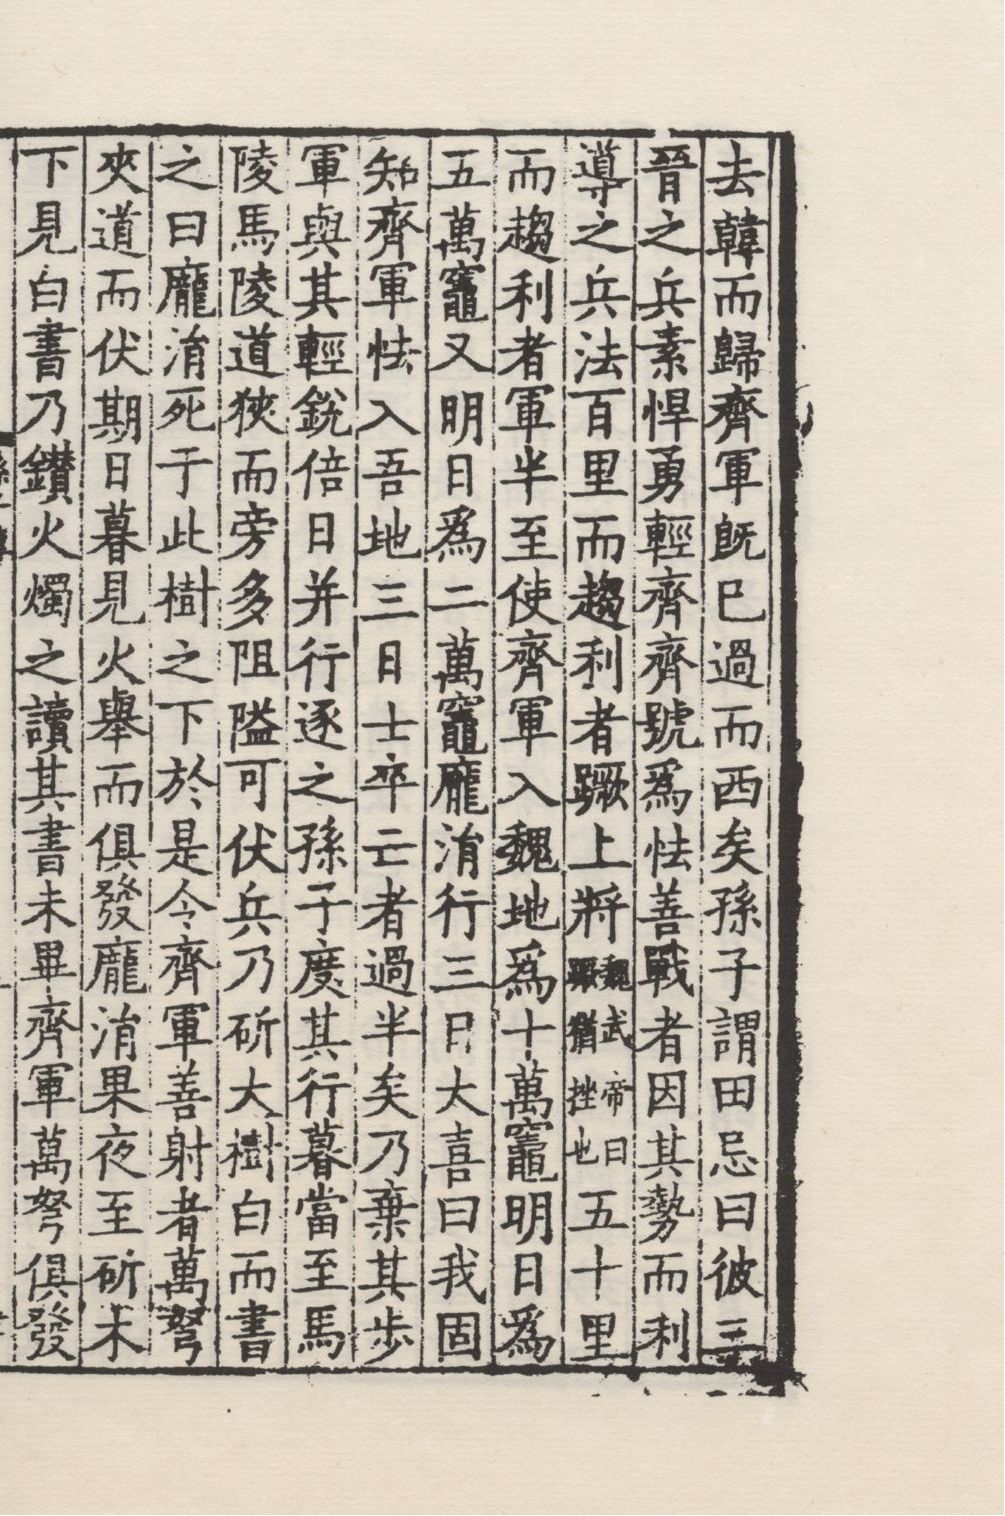 去韓而歸齊軍既已過而西矣孫子謂田忌曰彼三
晉之兵素悍勇輕齊齊號爲怯善戰者因其勢而利
導之兵法百里而趨利者蹶上將魏武帝曰蹶猶挫也五十里
而趨利者軍半至使齊軍入魏地爲十萬竈明日爲
五萬竈又明日爲二萬竈龐涓行三日大喜曰我固
知齊軍怯入吾地三日士卒亡者過半矣乃棄其步
軍與其輕銳倍日并行逐之孫子度其行暮當至馬
陵馬陵道狹而旁多阻隘可伏兵乃斫大樹白而書
之曰龐涓死于此樹之下於是令齊軍善射者萬弩
夾道而伏期日暮見火舉而俱發龐涓果夜至斫木
下見白書乃鑽火燭之讀其書未畢齊軍萬弩俱發